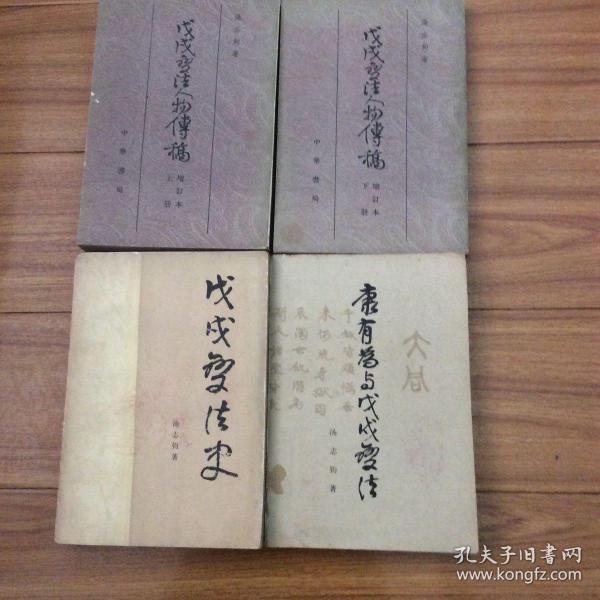 湯志鈞著
戊戌变法人物傳稿
增訂本
上册
中華書局
湯志鈞著
戊戌变法人物傳稿
增訂本
下册
中華書局
戊戌变法史
汤志钧著
康有为与戊戌变法
汤志钧著
孔夫子旧书网
www.kongfz.com